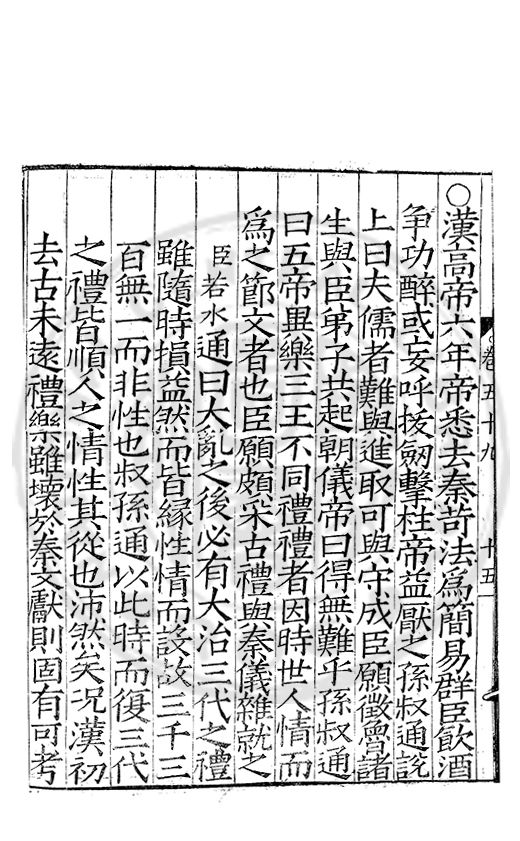 ○漢高帝六年帝悉去秦苛法為簡易群臣飲酒
争功醉或妄呼拔劒擊柱帝益厭之孫叔通說
上曰夫儒者難與進取可與守成臣願徵魯諸
生與臣弟子共起朝儀帝曰得無難乎孫叔通
曰五帝異樂三王不同禮禮者因時世人情而
爲之節文者也臣願頗采古禮與秦儀雜就之
臣若水通曰大亂之後必有大治三代之禮
雖隨時損益然而皆緣性情而設故三千三
百無一而非性也叔孫通以此時而復三代
之禮皆順人之情性其從也沛然矣况漢初
去古未遠禮樂雖壞於秦文獻則固有可考
卷五十九
十五